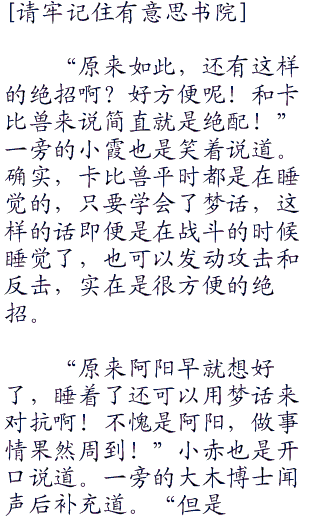 [请牢记住有意思书院]
“原来如此，还有这样
的绝招啊？好方便呢！和卡
比兽来说简直就是绝配！”
一旁的小霞也是笑着说道。
确实，卡比兽平时都是在睡
觉的，只要学会了梦话，这
样的话即便是在战斗的时候
睡觉了，也可以发动攻击和
反击，实在是很方便的绝
招。
“原来阿阳早就想好
了，睡着了还可以用梦话来
对抗啊！不愧是阿阳，做事
情果然周到！”小赤也是开
口说道。一旁的大木博士闻
声后补充道。“但是